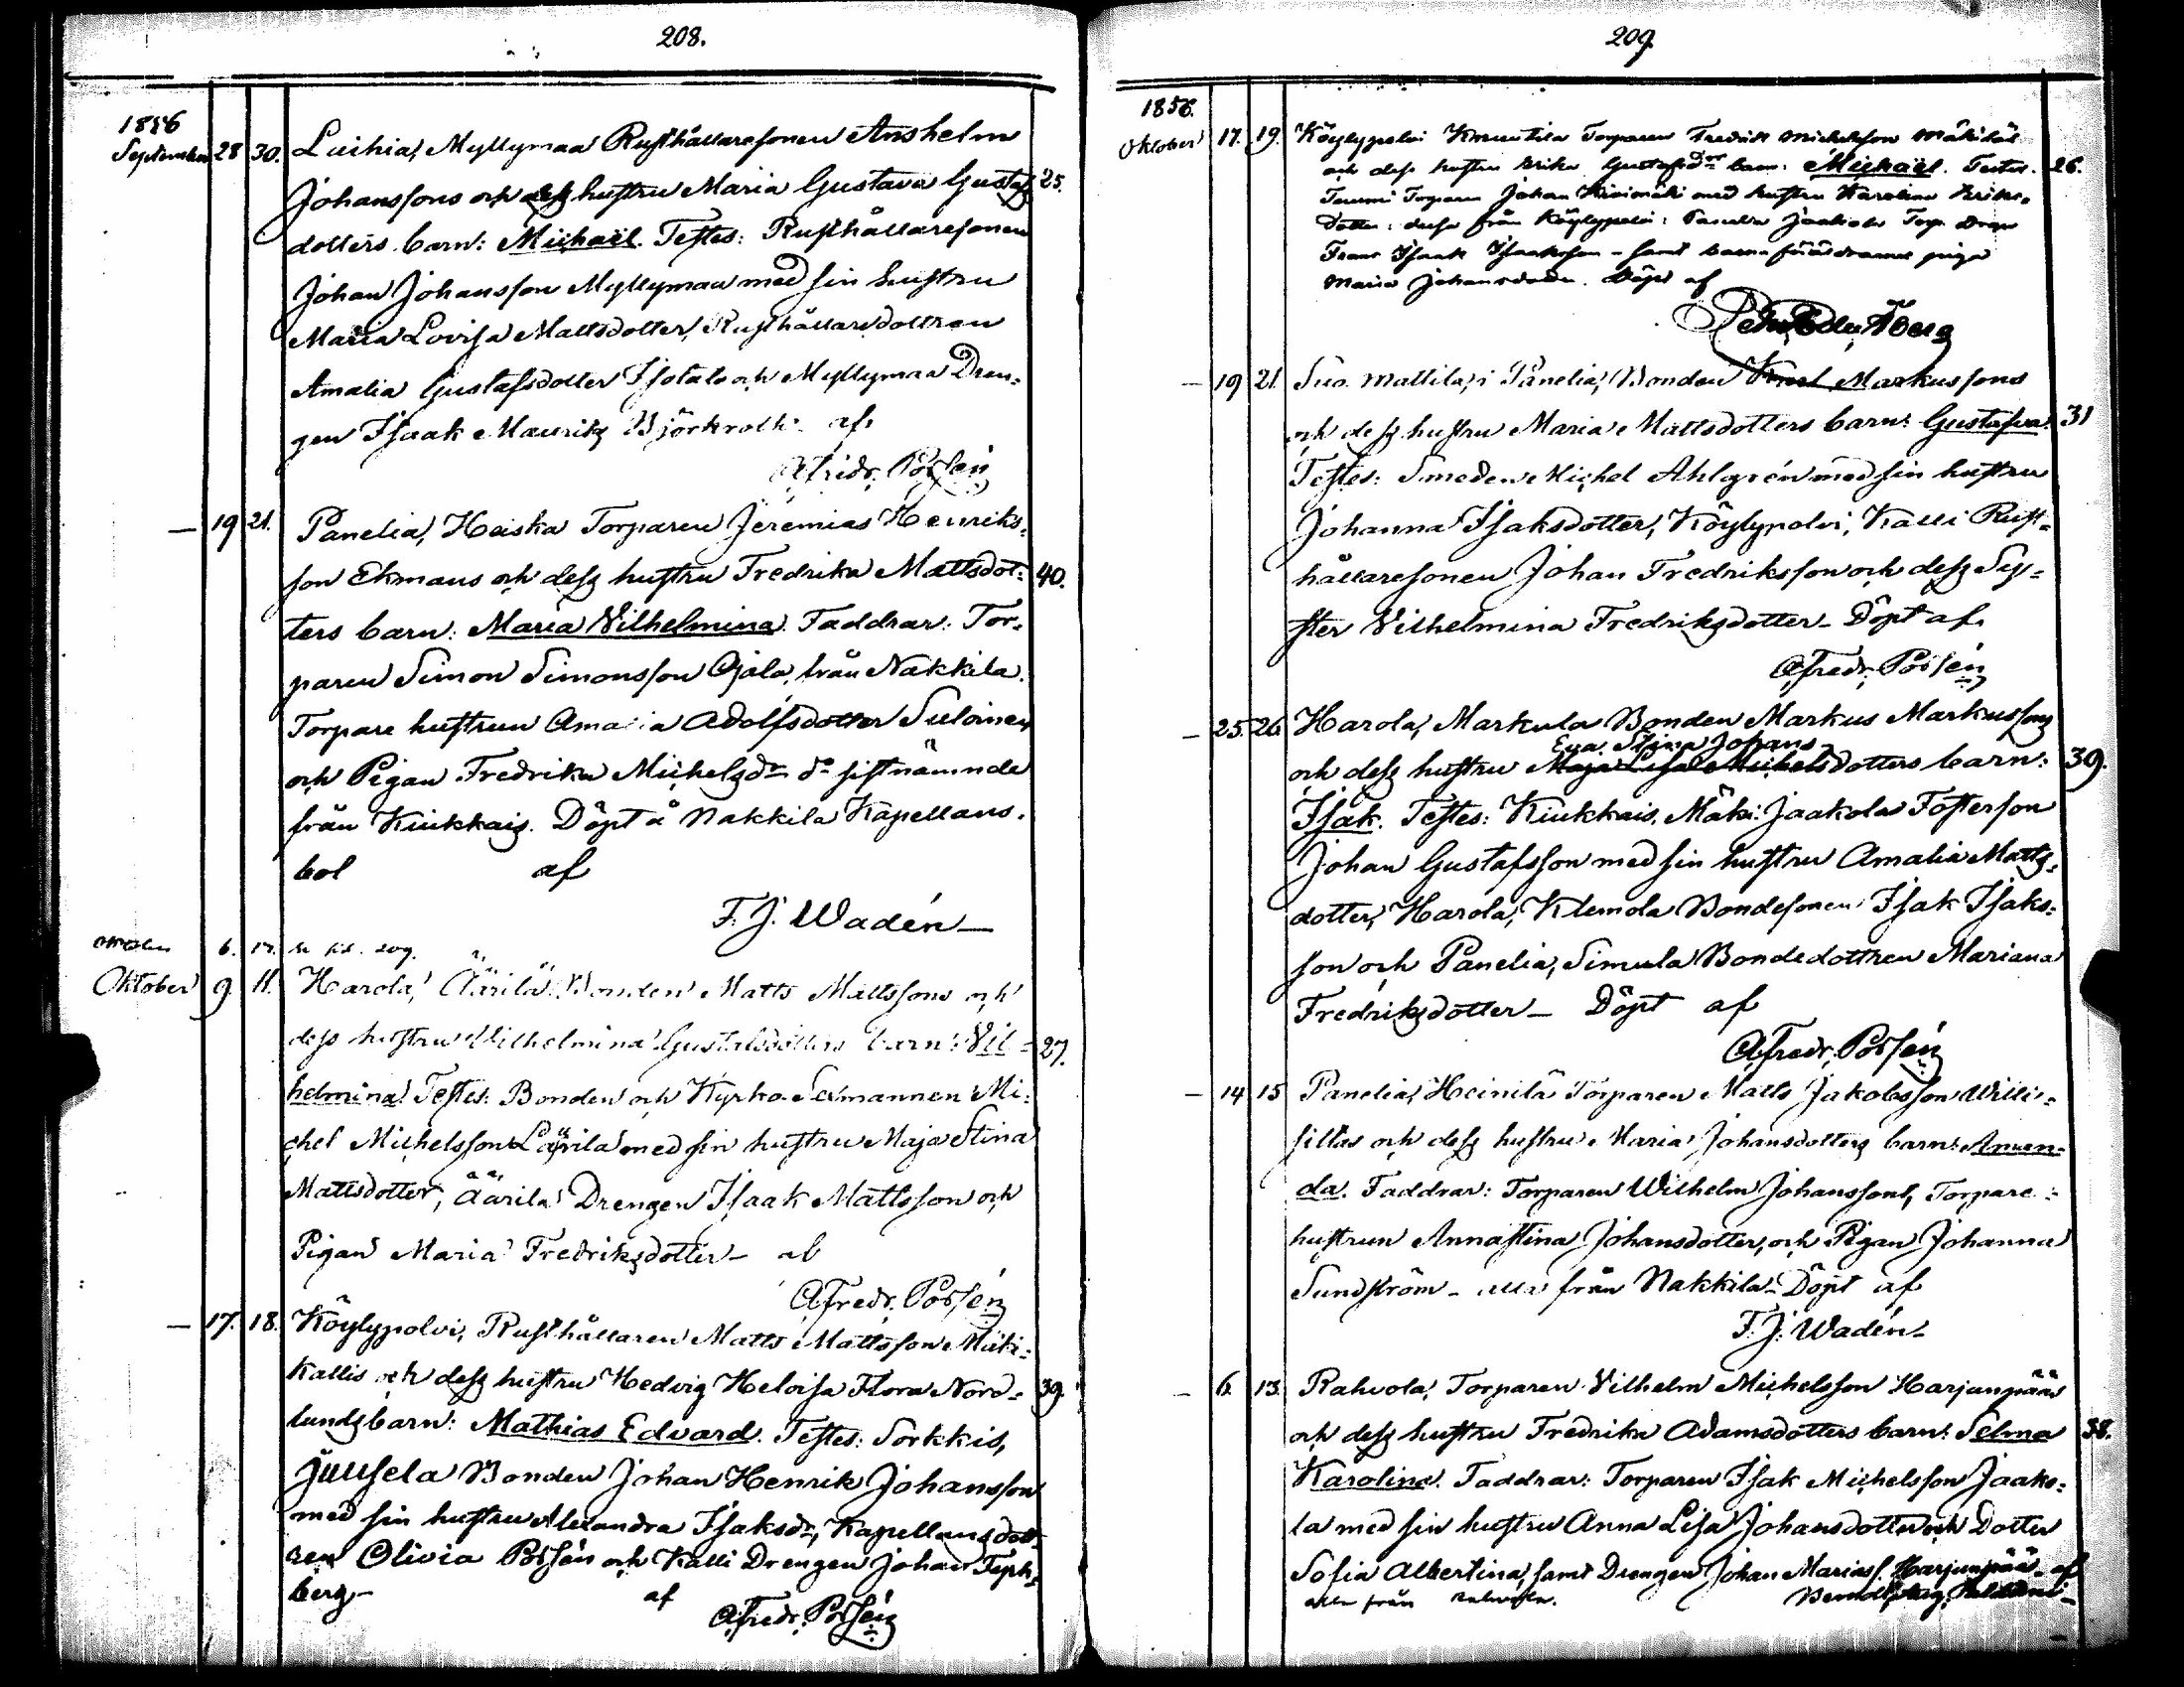 208.
1856
September 28 30. Luihia, Myllymaa Rusthållaresonen Anshelm
Johanssons och dess hustru Maria Gustava Gustafs= 25.
dotters barn: Michaël. Testes: Rusthållaresonen
Johan Johansson Myllymaa med sin hustru
Maria Lovisa Mattsdotter, Rusthållaredottren
Amalia Gustafsdotter Isotalo och Myllymaa Dren=
gen Isaak Mauritz Björkroth af
Afredr. Possén
— 19 21. Panelia, Haiska Torparen Jeremias Henriks=
son Ekmans och dess hustru Fredrika Mattsdot= 40.
ters barn: Maria Vilhelmina. Faddrar: Tor=
paren Simon Simonsson Ojala från Nakkila.
Torpare hustrun Amalia Adolfsdotter Suloinen
och Pigan Fredrika Michelsdr dº sistnämnde
från Kiukkais. Döpt å Nakkila Kapellans.
bol af
F. J. Wadén —
6. 209.
Oktober 9. 11. Harola, Äärilä Bonden Matts Mattssons och
dess hustru Vilhelmina Gustafsdotters barn: Vil= 27.
helmina. Testes: Bonden och Kyrko-Sexmannen Mi=
chel Michelsson Laurila med sin hustru Maja Stina
Mattsdotter, Äärila Drengen Isaak Mattsson och
Pigan Maria Fredriksdotter — af
Afredr. Possén
— 17. 18. Köylypolvi, Rusthållaren Matts Mattsson Mäki=
Kallis och dess hustru Hedvig Heloisa Flora Nord= 39.
lunds barn: Mathias Edvard. Testes: Sorkkis,
Juusela Bonden Johan Henrik Johansson
med sin hustru Alexandra Isaksdr, Kapellansdott
ren Olivia Possén och Kalli Drengen Johan
berg — af
Afredr. Possén
209
1856.
Oktober 17. 19. Köylypolvi Knuutila Torparen Fredrik Michelsson
och dess hustru Erika Gustafsdrs barn: Michaël. Testes. 26.
Torparen Johan Kivimäki med hustru Karolina Eriks=
dotter: dessa från Köylypolvi: Panelia Jaakola Torp. Dren
Frans Isaak Isaaksson — samt piga
Maria Johansdotter. Döpt af
— 19 21. Suo. Mattila, i Panelia, Bonden Karl Markussons
och dess hustru Maria Mattsdotters barn: Gustafva. 31
Testes: Smeden Michel Ahlgrén med sin hustru
Johanna Isaksdotter, Köylypolvi, Kalli Rust=
hållaresonen Johan Fredriksson och dess Sy=
ster Vilhelmina Fredriksdotter — Döpt af
Afredr. Possén
— 25. 26 Harola, Markula Bonden Markus Markussons
Eva Stina Johans
och dess hustru Maja Lisa Michelsdotters barn: 39.
Isak. Testes: Kiukkais, Mäki-Jaakola Fosterson
Johan Gustafsson med sin hustru Amalia Matts=
dotter, Harola, Klemola Bondesonen Isak Isaks=
son och Panelia, Simula Bondedottren Mariana
Fredriksdotter — Döpt af
Afredr. Possén
— 14 15 Panelia, Heinilä Torparen Matts Jakobsson Willi=
sillas och dess hustru Maria Johansdotters barn: Aman=
da. Faddrar: Torparen Wilhelm Johansson, Torpare=
hustrun Annastina Johansdotter, och Pigan Johanna
Sundström — alla från Nakkila — Döpt af
F. J. Wadén —
— 6. 13. Rahvola, Torparen Vilhelm Michelsson Harjunpääs
och dess hustru Fredrika Adamsdotters barn: Selma 38.
Karolina. Faddrar: Torparen Isak Michelsson Jaako=
la med sin hustru Anna Lisa Johansdotter och Dotter
Sofia Albertina, samt Drengen Johan Mariass. Harjunpää — af
alla från Rahvola.